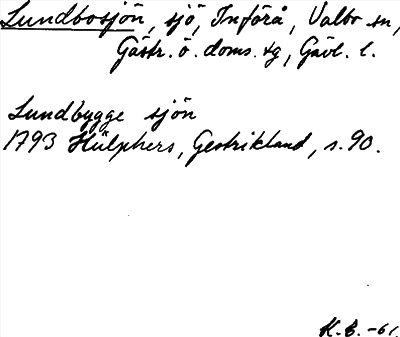 Lundbosjön, sjö, Införå, Valbo sn,
Gästr. ö. doms. tg, Gävl. l.
Lundbygge sjön
1793 Hülphers, Gestrikland, s. 90.
K.B. -61